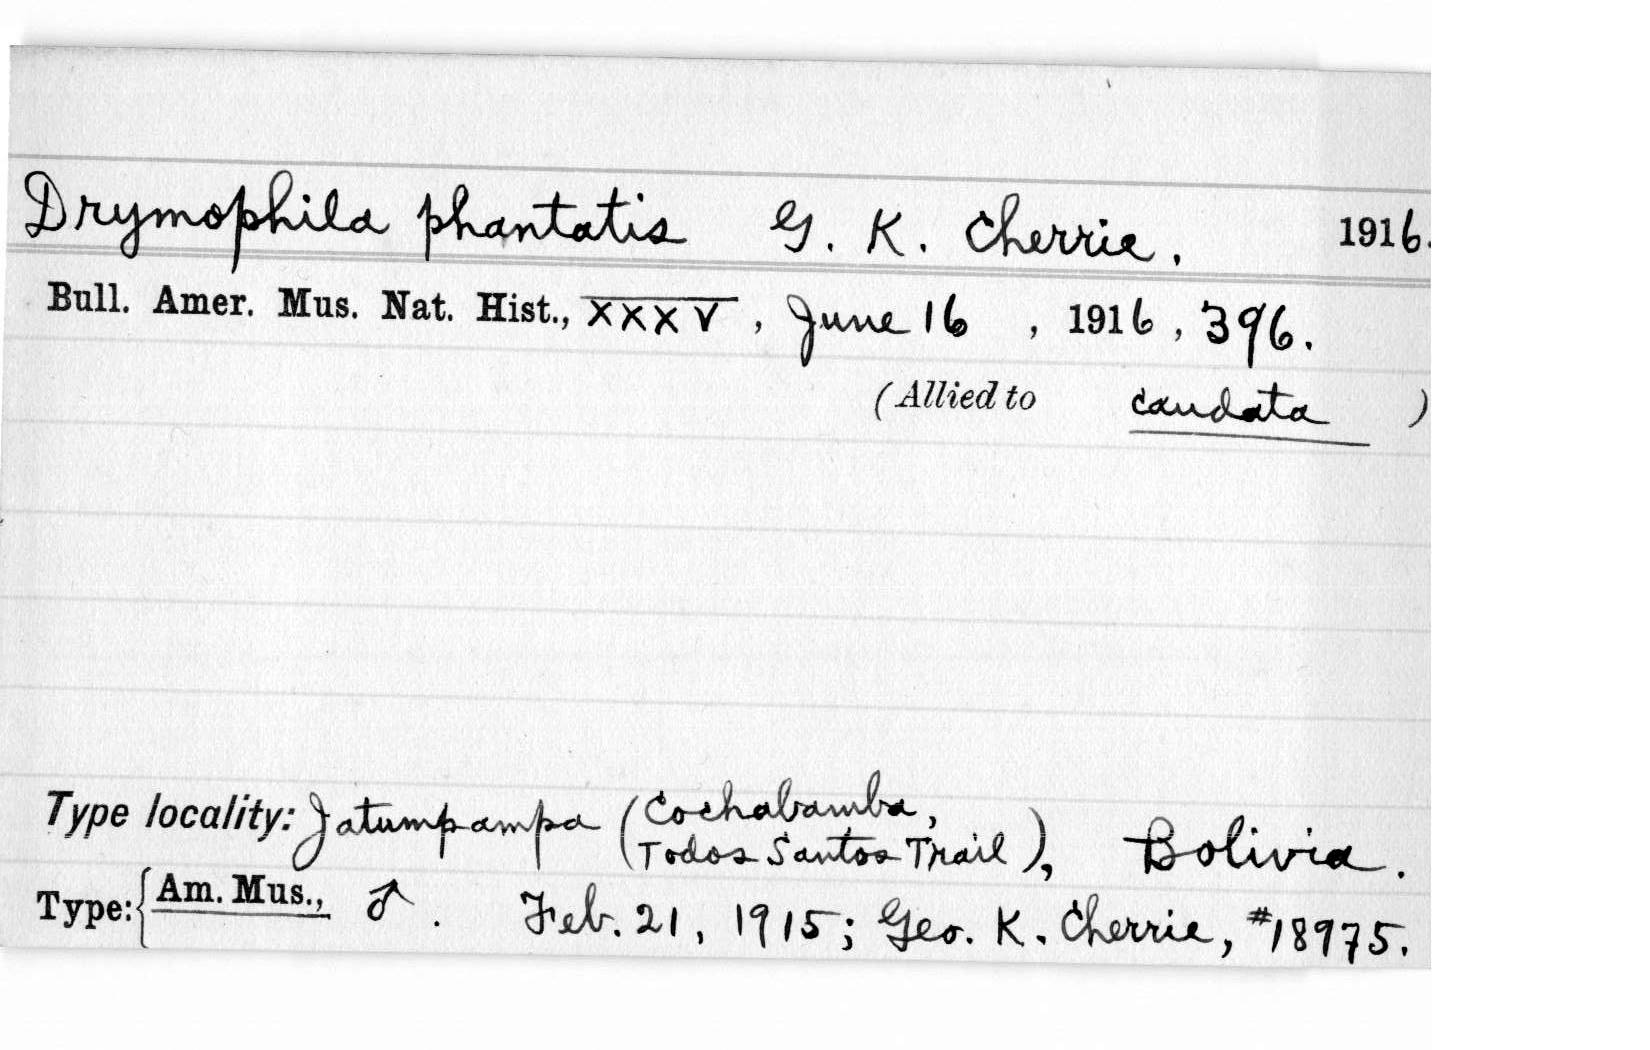 Drymophila phantatis G. K. Cherrie. 1916.
Bull. Amer. Mus. Nat. Hist., XXXV, June 16, 1916, 396.
(Allied to caudata )
Type locality: Jatumpampa (Cochabamba,
Todos Santos Trail), Bolivia.
Type: { Am. Mus., ♂. Feb. 21, 1915; Geo. K. Cherrie, #18975.